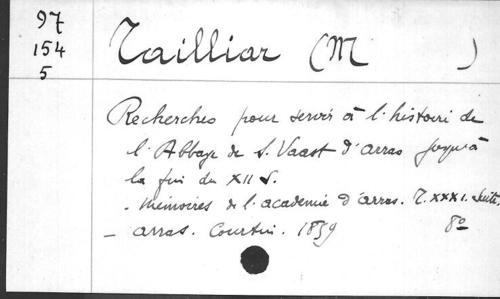 97
154
5
Tailliar (M )
Recherches pour servir à l'histoire de
l'Abbaye de S. Vaast d'Arras jusqu'à
la fin du XII S.
- Mémoires de l'académie d'Arras. T. XXXI. Suite,
- Arras. Courtin. 1859 8º